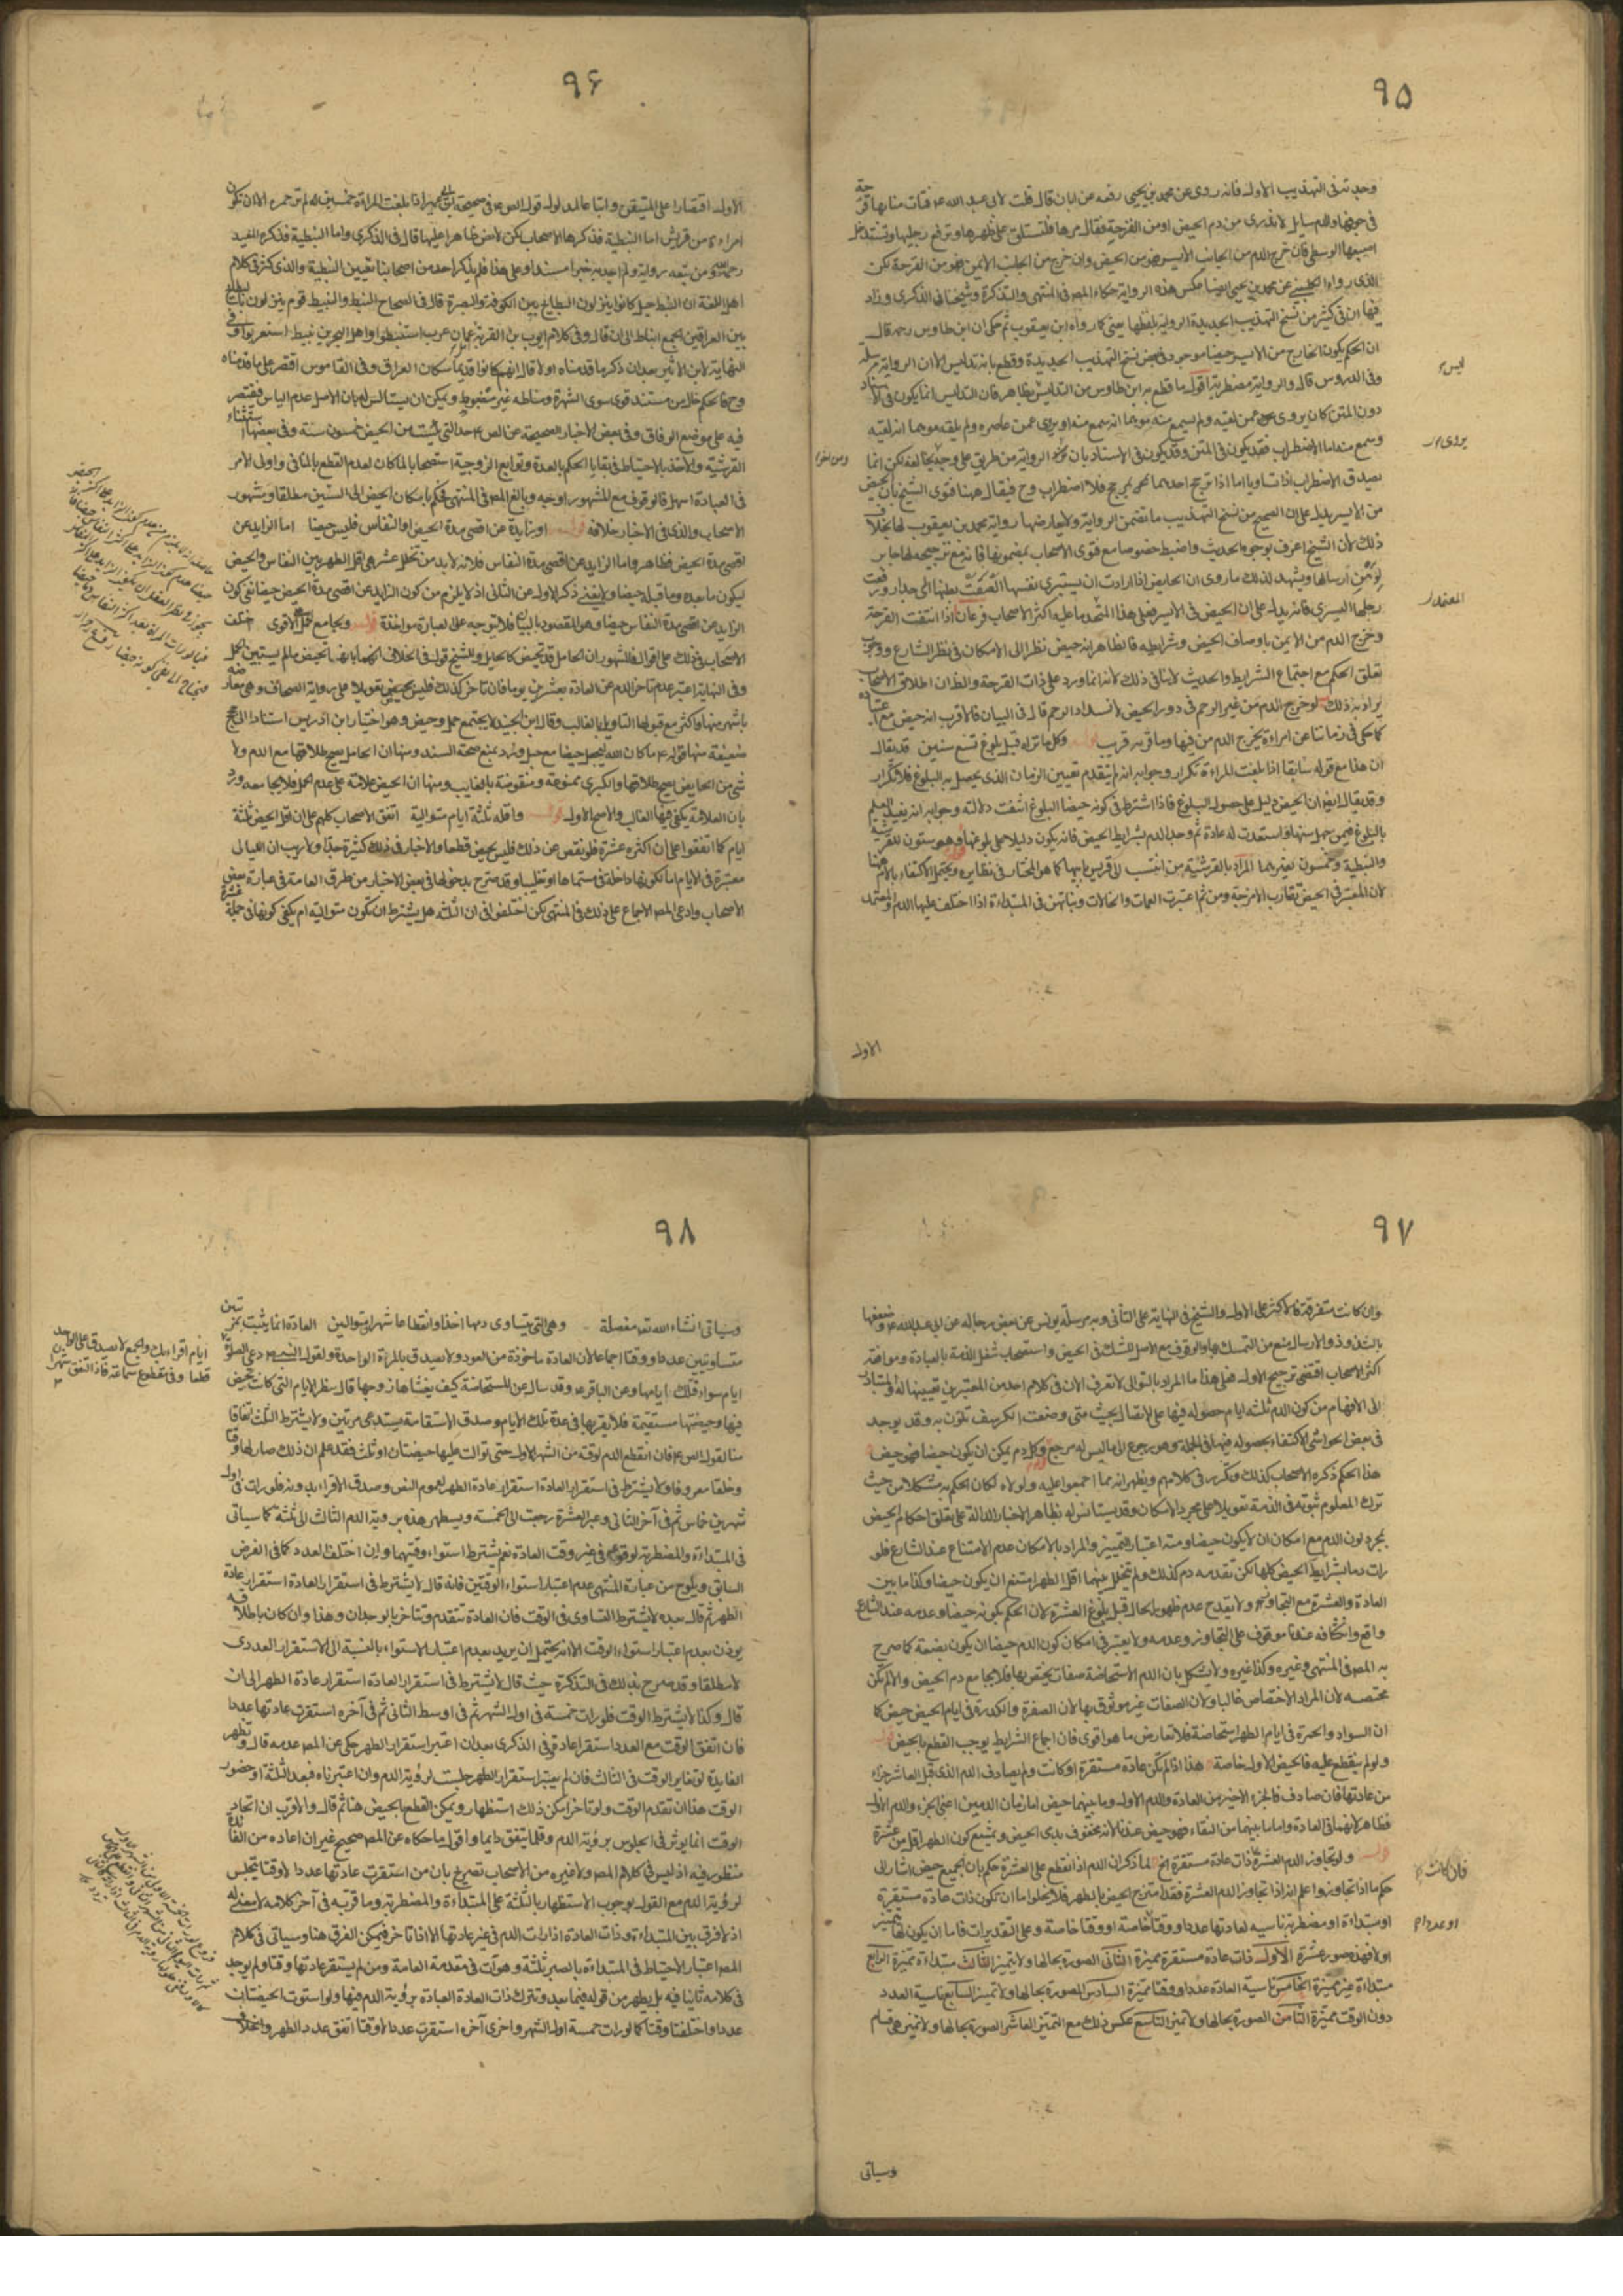 ٩٥
وجدته فى التهذيب الاول فانه روى عن محمد بن يحيى رفعه عن ابان قال قلت لابى عبد الله ع فتات منا بها قرحة
فى جوفها والدم سايل لا تدرى من دم الحيض او من القرحة فقال مرها فلتستلق على ظهرها وترفع رجليها وتستدخل
اصبعها الوسطى فان خرج الدم من الجانب الايسر فهو من الحيض وان خرج من الجانب الايمن فهو من القرحة لكن
الذى رواه الكلينى عن محمد بن يحيى ايضا عكس هذه الرواية حكاه المص فى المنتهى والتذكرة وشيخنا فى الذكرى وزاد
فيها ان فى كثير من نسخ التهذيب الجديدة الرواية بلفظها يعنى كما رواه ابن يعقوب ثم حكى ان ابن طاوس رحمه قال
ان الحكم بكون الخارج من الايسر حيضا موجود فى بعض نسخ التهذيب الجديدة وقطع بانه تدليس الا ان الرواية مرسلة
ليس
وفى الدروس قال والرواية مضطربة اقول ما قطع به ابن طاوس من التدليس بظاهر فان التدليس انما يكون فى الاسناد
دون المتن كان يروى عمن لقيه ولم يسمع منه موهما انه سمع منه او يروى عمن عاصره ولم يلقه موهما انه لقيه
يروى
وسمع منه اما الاضطراب فقد يكون فى المتن وقد يكون فى الاسناد بان الرواية من طريق على وجه يخالفه لكن انما
يصدق الاضطراب اذا تساويا اما اذا ترجح احدهما على بمرجح فلا اضطراب وح فيقال ههنا فتوى الشيخ بان الحيض
من الايسر يدل على ان الصحيح من نسخ التهذيب ما تضمن الرواية ولا يعارضها رواية محمد بن يعقوب لها بخلاف
ذلك لان الشيخ اعرف بوجوه الحديث واضبط خصوصا مع فتوى الاصحاب بمضمونها فانه مع ترجيحه لها جابر
لوهن ارسالها ويشهد لذلك ما روى ان الحايض اذا ارادت ان يستبرى نفسها الصقت بطنها الى جدار ورفعت
المعتمد
رجلها اليسرى فانه يدل على ان الحيض فى الايسر فعلى هذا المتجه ما عليه اكثر الاصحاب فرعان اذا انتفت القرحة
وخرج الدم من الايمن باوصاف الحيض وشرايطه فالظاهر انه حيض نظرا الى الامكان فى نظر الشارع ووجوب
تعلق الحكم مع اجتماع الشرايط والحديث لا ينافى ذلك لانه انما ورد على ذات القرحة والظ ان اطلاق الاصحاب
يراد به ذلك لو خرج الدم من غير الرحم فى دور الحيض لانسداد الرحم قال فى البيان فالاقرب انه حيض مع اعتياده
كما حكى فى زماننا عن امراءة يخرج الدم من فيها وما قرب وكل ما تراه قبل بلوغ تسع سنين قد يقال
ان هذا مع قوله سابقا اذا بلغت المراءة تكرار وجوابه انه لم يتقدم تعيين الزمان الذى يحصل به البلوغ فلا تكرار
وقد يقال ايضا ان الحيض دليل على حصول البلوغ فاذا اشترط فى كونه حيضا البلوغ انتفت دلالته وجوابه انه يفيد العلم
بالبلوغ فيمن جهل سنها واستعدت له عادة ثم وجد الدم بشرايط الحيض فانه يكون دليلا على بلوغها وهو ستون للقرشية
والنبطية وخمسون لغيرهما المراد بالقرشية من انتسب الى قريش بابيها كما هو المختار فى نظايره ويحتمل الاكتفاء بالام هنا
لان المعتبر فى الحيض تقارب الامزجة ومن ثم اعتبرت العمات والخالات وبناتهن فى المبتداءة اذا اختلف عليها الدم والمعتمد
الاول
٩٦
الاول اقتصارا على المتيقن واتباعا لمدلول قول الص ع فى صحيحة ابن ابى عمير اذا بلغت المراءة خمسين سنة لم تر حمرة الا ان تكون
امراءة من قريش اما النبطية فذكرها الاصحاب لكن لا نص ظاهرا عليها قال فى الذكرى واما النبطية فذكره المفيد
رحمه الله ومن تبعه رواية ولم اجد به خبرا مسندا وعلى هذا فلم يذكر احد من اصحابنا تعيين النبطية والذى كثر فى كلام
اهل اللغة ان النبط جيل كانوا ينزلون البطايح بين الكوفة والبصرة قال فى الصحاح النبط والنبيط قوم ينزلون بالبطايح
بين العراقين الجمع انباط الى ان قال وفى كلام ايوب بن القرية عمان عرب استنبطوا واهل البحرين نبيط استعربوا وفى
النهاية لابن الاثير بعد ان ذكر ما قدمناه اولا قال انهم كانوا قديما سكان العراق وفى القاموس اقتصر على ما قدمناه
وح فالحكم خال من مستند قوى سوى الشهرة ومناطه غير مضبوط ويمكن ان يستانس له بان الاصل عدم الياس فيقتصر
فيه على موضع الوفاق وفى بعض الاخبار الصحيحة عن الص ع حد التى يئست من الحيض خمسون سنة وفى بعضها استثناء
القرشية والاخذ بالاحتياط فى بقايا الحكم بالعدة وتوابع الزوجية استصحابا لما كان لعدم القطع بالمنافى واولى الامر
فى العبادة اسهل فالوقوف مع المشهور اوجه وبالغ المص فى المنتهى فحكم بامكان الحيض الى الستين مطلقا ومشهور
الاصحاب والذى فى الاخبار خلافه قوله او زايدة عن اقصى مدة الحيض او النفاس فليس حيضا اما الزايد عن
اقصى مدة الحيض فظاهر واما الزايد عن اقصى مدة النفاس فلانه لابد من تخلل عشرة هى اقل الطهر بين النفاس والحيض
ليكون ما بعده وما قبله حيضا ولا يغنى ذكر الاول عن الثانى اذ لا يلزم من كون الزايد عن اقصى مدة الحيض حيضا نفى كون
الزايد عن اقصى مدة النفاس حيضا وهو المقصود بالبيان فلا يتوجه على العبارة مواخذة قوله ويجامع الحمل على الاقوى اختلف
الاصحاب فى ذلك على اقوال فالمشهور ان الحامل قد تحيض كالحايل وللشيخ قول فى الخلاف انها انما تحيض ما لم يستبين الحمل
وفى النهاية اعتبر عدم تاخر الدم عن العادة بعشرين يوما فان تاخر كذلك فليس بحيض تعويلا على رواية الصحاف وهى معارضة
باشهر منها واكثر مع قبولها التاويل بالغالب وقال ابن الجنيد لا يجتمع حمل وحيض وهو اختيار ابن ادريس استنادا الى حجج
ضعيفة منها قوله ع ما كان الله ليجعل حيضا مع حبل ويرد بمنع صحة السند ومنها ان الحامل يصح طلاقها مع الدم ولا
شئ من الحايض يصح طلاقها والكبرى ممنوعة ومنقوضة بالغايب ومنها ان الحيض علامة على عدم الحمل فلا يجامعه ورد
بان العلامة يكفى فيها الغالب والاصح الاول قوله واقله ثلثة ايام متوالية اتفق الاصحاب كلهم على ان اقل الحيض ثلثة
ايام كما اتفقوا على ان اكثره عشرة فلو نقص عن ذلك فليس بحيض قطعا والاخبار فى ذلك كثيرة جدا ولا ريب ان الليالى
معتبرة فى الايام اما لكونها داخلة فى مسماها او تغليبا وقد صرح بدخولها فى بعض الاخبار من طرق العامة فى عبارة بعض
الاصحاب وادعى المص الاجماع على ذلك فى المنتهى لكن اختلفوا فى ان الثلثة هل يشترط ان تكون متوالية ام يكفى كونها فى جملة عشرة
٩٧
وان كانت متفرقة فالاكثر على الاول والشيخ فى النهاية على الثانى وبه مرسلة يونس عن بعض رجاله عن ابى عبد الله ع وضعفها
بالشذوذ والارسال يمنع من التمسك بها والوقوف مع الاصل للشك فى الحيض واستصحاب شغل الذمة بالعبادة وموافقة
اكثر الاصحاب اقتضى ترجيح الاول فعلى هذا ما المراد بالتوالى لا تعرف الان فى كلام احد من المعتبرين تعيينها له والمتبادر
الى الافهام من كون الدم ثلثة ايام حصوله فيها على الاتصال بحيث متى وضعت الكرسف تلوث به وقد يوجد
فى بعض الحواشى الاكتفاء بحصوله فيها فى الجملة وهو رجوع الى ما ليس له مرجع قوله وكل دم يمكن ان يكون حيضا فهو حيض
هذا الحكم ذكره الاصحاب كذلك وتكرر فى كلامهم ويظهر انه مما اجمعوا عليه ولولاه لكان الحكم به مشكلا من حيث
ترك المعلوم ثبوته فى الذمة تعويلا على مجرد الامكان وقد يستانس له بظاهر الاخبار الدالة على تعلق احكام الحيض
بمجرد لون الدم مع امكان ان لا يكون حيضا ومنه اعتبار التمييز والمراد بالامكان عدم الامتناع عند الشارع فلو
رات دما بشرايط الحيض كلها لكن تقدمه دم كذلك ولم يتخلل بينهما اقل الطهر امتنع ان يكون حيضا وكذا ما بين
العادة والعشرة مع التجاوز ولا يقدح عدم ظهور الحال قبل بلوغ العشرة لان الحكم بكونه حيضا وعدمه عند الشارع
واقع وانكشافه عندنا موقوف على التجاوز وعدمه ولا يعتبر فى امكان كون الدم حيضا ان يكون بصفته كما صرح
به المص فى المنتهى وغيره وكذا غيره ولا يشكل بان الدم الاستحاضة صفات يختص بها فلا يجامع دم الحيض والا لم تكن
مختصة لان المراد الاختصاص غالبا ولان الصفات غير موثوق بها لان الصفرة والكدرة فى ايام الحيض حيض كما
ان السواد والحمرة فى ايام الطهر استحاضة فلا تعارض ما هو اقوى فان اجماع الشرايط يوجب القطع بالحيض قوله
ولو لم ينقطع عليه فالحيض الاول خاصة هذا اذا لم تكن عادة مستقرة او كانت ولم يصادف الدم الذى قبل العاشر جزاء
من عادتها فان صادف فالجزء الاخير من العادة والدم الاول وما بينهما حيض اما زمان الدمين اعنى الجزء والدم الاول
فظاهر لانهما فى العادة واما ما بينهما من النقاء فهو حيض عندنا لانه محفوف بدمى الحيض ويمتنع كون الطهر اقل من عشرة
قوله ولو تجاوز الدم العشرة ذات عادة مستقرة الخ لما ذكر ان الدم اذا انقطع على العشرة حكم بان الجميع حيض اشار الى
فان كانت
حكم ما اذا تجاوزها واعلم انه اذا تجاوز الدم العشرة فقد امتزج الحيض بالطهر فلا يخلوا اما ان تكون ذات عادة مستقرة
او عددا
او مبتداءة او مضطربة ناسية لعادتها عددا ووقتا خاصة او وقتا خاصة وعلى التقديرات فاما ان يكون لها تمييز
او لا فهذه صور عشرة الاول ذات عادة مستقرة مميزة الثانى الصورة بحالها ولا تمييز الثالث مبتداءة مميزة الرابع
مبتداءة غير مميزة الخامس ناسية العادة عددا ووقتا مميزة السادس الصورة بحالها ولا تمييز السابع ناسية العدد
دون الوقت مميزة الثامن الصورة بحالها ولا تمييز التاسع عكس ذلك مع التمييز العاشر الصورة بحالها ولا تمييز هى قسام
وسياتى
٩٨
وسياتى انشاء الله تع مفصلة وهى التى يتساوى دمها اخذا وانقطاعا شهرين متواليين العادة انما يثبت بمرتين
متساويتين عددا ووقتا اجماعا لان العادة ماخوذة من العود ولا يصدق بالمرة الواحدة ولقول النبى ص دعى الصلوة
ايام اقراءك والجمع لا يصدق على الواحد
قطعا وفى مقطوع سماعة فاذا اتفق شهرين
ايام سواء فتلك ايامها وعن الباقر ع وقد سال عن المستحاضة كيف يغشاها زوجها قال ينظر الايام التى كانت تحيض
فيها وحيضتها مستقيمة فلا يقربها فى عدة تلك الايام وصدق الاستقامة يستدعى مرتين ولا يشترط الثلث اتفاقا
منا لقول الص ع فان انقطع الدم لوقته من الشهر الاول حتى توالت عليها حيضتان او ثلث فقد علم ان ذلك صار لها وقتا
وخلقا معروفا ولا يشترط فى استقرار العادة استقرار عادة الطهر لعموم النص وصدق الاقراء بدونه فلو رات فى اول
شهرين خاس ثم فى آخر الثانى وعبر العشرة رجعت الى الخمسة ويسطهر هذه برويه الدم الثالث الى ثلثة كما سياتى
فى المبتداءة والمضطربة لوقوعه فى غير وقت العادة نعم يشترط استواء وقتيهما وان اختلف العدد كما فى الفرض
السابق ويلوح من عبارة المنتهى عدم اعتبار استواء الوقتين فانه قال لا يشترط فى استقرار العادة استقرار عادة
الطهر ثم قال بعده لا يشترط التساوى فى الوقت فان العادة تتقدم وتتاخر بالوجدان وهذا وان كان باطلاقه
يوذن بعدم اعتبار استواء الوقت الا انه يحتمل ان يريد بعدم اعتبار الاستواء بالنسبة الى الاستقرار العددى
لا مطلقا وقد صرح بذلك فى التذكرة حيث قال لا يشترط فى استقرار العادة استقرار عادة الطهر الى ان
قال وكذا لا يشترط الوقت فلو رات خمسة فى اول الشهر ثم فى اوسط الثانى ثم فى آخره استقرت عادتها عددا
فان اتفق الوقت مع العدد استقرا عادة وفى الذكرى بعد ان اعتبر استقرار الطهر حكى عن المص عدمه قال وتظهر
الفايدة لو تغاير الوقت فى الثالث فان لم يعتبر استقرار الطهر جلست لرؤية الدم وان اعتبرناه فبعد الثلثة او حضور
الوقت هذا ان تقدم الوقت ولو تاخر امكن ذلك استظهارا ويمكن القطع بالحيض هنا ثم قال والاقرب ان اتحاد
الوقت انما يوثر فى الجلوس برؤية الدم وقلما يتفق دايما واقول ما حكاه عن المص صحيح غير ان اعاده من الفائدة
منظور فيه اذ ليس فى كلام المص ولا غيره من الاصحاب تصريح بان من استقرت عادتها عددا لا وقتا تجلس
لرؤية الدم مع القول بوجوب الاستظهار بالثلثة على المبتداءة والمضطربة وما قربه فى آخر كلامه لا معدل له
اذ لا فرق بين المبتداءة وذات العادة اذا رات الدم فى غير عادتها الا اذا تاخر فيمكن الفرق هنا وسياتى فى كلام
المص اعتبار الاحتياط فى المبتداءة بالصبر ثلثة وهو آت فى متقدمة العامة ومن لم يستقر عادتها وقتا ولم يوجد
فى كلامه تاينا فيه بل يظهر من قوله فيما بعد وتترك ذات العادة العبادة برؤية الدم فيها ولو استوت الحيضتان
عددا واختلفتا وقتا كما لو رات خمسة اول الشهر واخرى آخره استقرت عددا لا وقتا اتفق عدد الطهر واختلاف